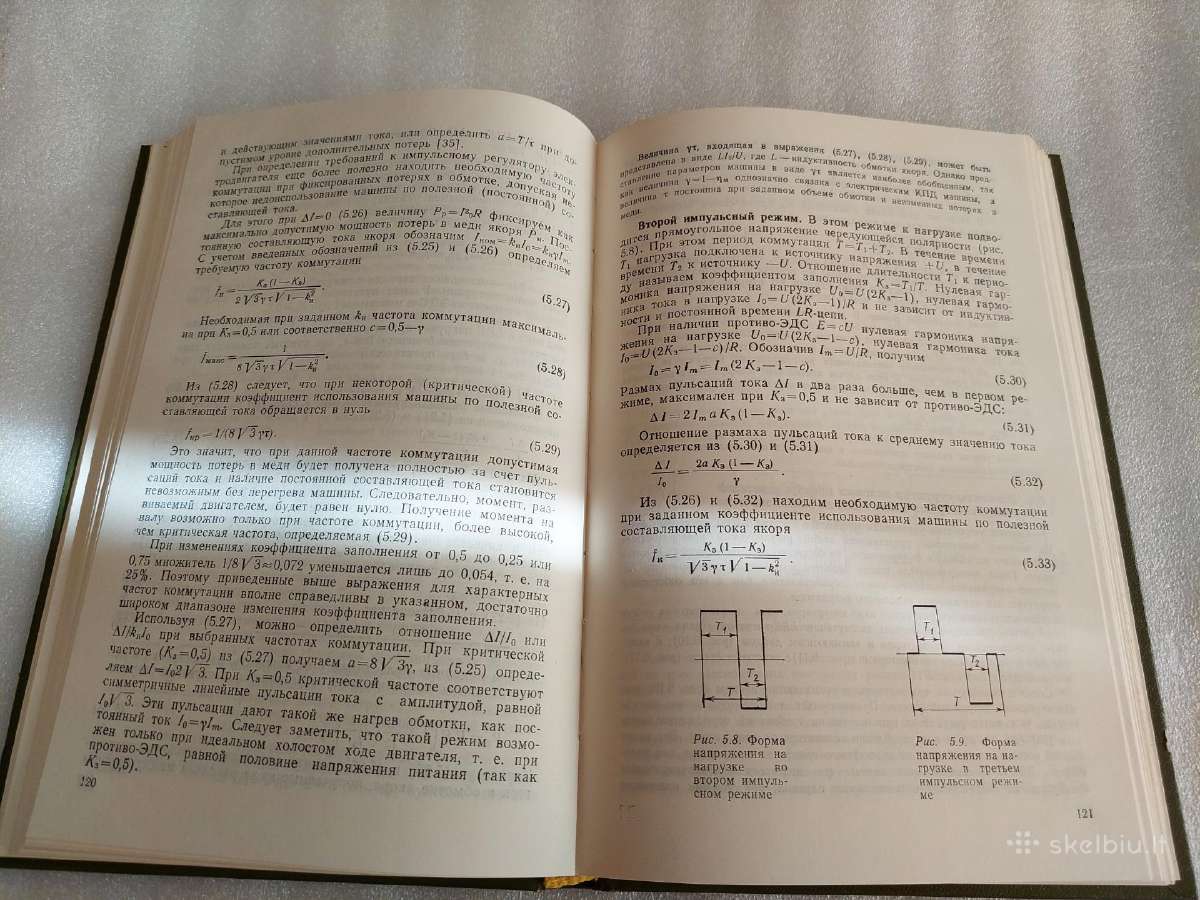 и действующим значениями тока, или определить a=T/τ при до-
пустимом уровне дополнительных потерь [35].
При определении требований к импульсному регулятору элек-
тродвигателя еще более полезно находить необходимую частоту
коммутации при фиксированных потерях в обмотке, допуская не-
которое недоиспользование машины по полезной (постоянной) со-
ставляющей тока.
Для этого при ΔI=0 (5.26) величину фиксируем как
максимально допустимую мощность потерь в меди якоря. Пос-
тоянную составляющую тока якоря обозначим
С учетом введенных обозначений из (5.25) и (5.26) определяем
требуемую частоту коммутации
fн = Kз (1 — Kз) / 2 √3 γ τ √1 — kн². (5.27)
Необходимая при заданном kн частота коммутации максималь-
на при Kз=0,5 или соответственно c=0,5—γ
fмакс = 1 / 8 √3 γ τ √1—kн². (5.28)
Из (5.28) следует, что при некоторой (критической) частоте
коммутации коэффициент использования машины по полезной со-
ставляющей тока обращается в нуль
fкр = 1/(8 √3 γτ). (5.29)
Это значит, что при данной частоте коммутации допустимая
мощность потерь в меди будет получена полностью за счет пуль-
саций тока и наличие постоянной составляющей тока становится
невозможным без перегрева машины. Следовательно, момент, раз-
виваемый двигателем, будет равен нулю. Получение момента на
валу возможно только при частоте коммутации, более высокой,
чем критическая частота, определяемая (5.29).
При изменениях коэффициента заполнения от 0,5 до 0,25 или
0,75 множитель 1/8√3≈0,072 уменьшается лишь до 0,054, т. е. на
25%. Поэтому приведенные выше выражения для характерных
частот коммутации вполне справедливы в указанном, достаточно
широком диапазоне изменения коэффициента заполнения.
Используя (5.27), можно определить отношение ΔI/I₀ или
ΔI/kнI₀ при выбранных частотах коммутации. При критической
частоте (Kз=0,5) из (5.27) получаем a=8√3γ, из (5.25) опреде-
ляем ΔI=I₀2√3. При Kз=0,5 критической частоте соответствуют
симметричные линейные пульсации тока с амплитудой, равной
I₀√3. Эти пульсации дают такой же нагрев обмотки, как пос-
тоянный ток I₀=γIm. Следует заметить, что такой режим возмо-
жен только при идеальном холостом ходе двигателя, т. е. при
противо-ЭДС, равной половине напряжения питания (так как
Kз=0,5).
120
Величина γτ, входящая в выражения (5.27), (5.28), (5.29), может быть
представлена в виде LI₀/U, где L — индуктивность обмотки якоря. Однако пред-
ставление параметров машины в виде γτ является наиболее обобщенным, так
как величина γ=1—ηм однозначно связана с электрическим КПД машины, а
величина τ постоянна при заданном объеме обмотки и неизменных потерях в
меди.
Второй импульсный режим. В этом режиме к нагрузке подво-
дится прямоугольное напряжение чередующейся полярности (рис.
5.8). При этом период коммутации T=T₁+T₂. В течение времени
T₁ нагрузка подключена к источнику напряжения +U, в течение
времени T₂ к источнику —U. Отношение длительности T₁ к перио-
ду называем коэффициентом заполнения Kз=T₁/T. Нулевая гар-
моника напряжения на нагрузке U₀=U(2Kз—1), нулевая гармо-
ника тока в нагрузке I₀=U(2Kз—1)/R и не зависит от индуктив-
ности и постоянной времени LR-цепи.
При наличии противо-ЭДС E=cU нулевая гармоника напря-
жения на нагрузке U₀=U(2Kз—1—c), нулевая гармоника тока
I₀=U(2Kз—1—c)/R. Обозначив Im=U/R, получим
I₀=γ Im=Im (2 Kз—1—c). (5.30)
Размах пульсаций тока ΔI в два раза больше, чем в первом ре-
жиме, максимален при Kз=0,5 и не зависит от противо-ЭДС:
ΔI=2 Im a Kз (1—Kз). (5.31)
Отношение размаха пульсаций тока к среднему значению тока
определяется из (5.30) и (5.31)
ΔI / I₀ = 2a Kз (1—Kз) / γ. (5.32)
Из (5.26) и (5.32) находим необходимую частоту коммутации
при заданном коэффициенте использования машины по полезной
составляющей тока якоря
fн = Kз (1—Kз) / √3 γ τ √1—kн². (5.33)
T₁
T₂
T
T₁
T₂
T
Рис. 5.8. Форма
напряжения на
нагрузке во
втором импуль-
сном режиме
Рис. 5.9. Форма
напряжения на на-
грузке в третьем
импульсном режи-
ме
121
skelbiu.lt